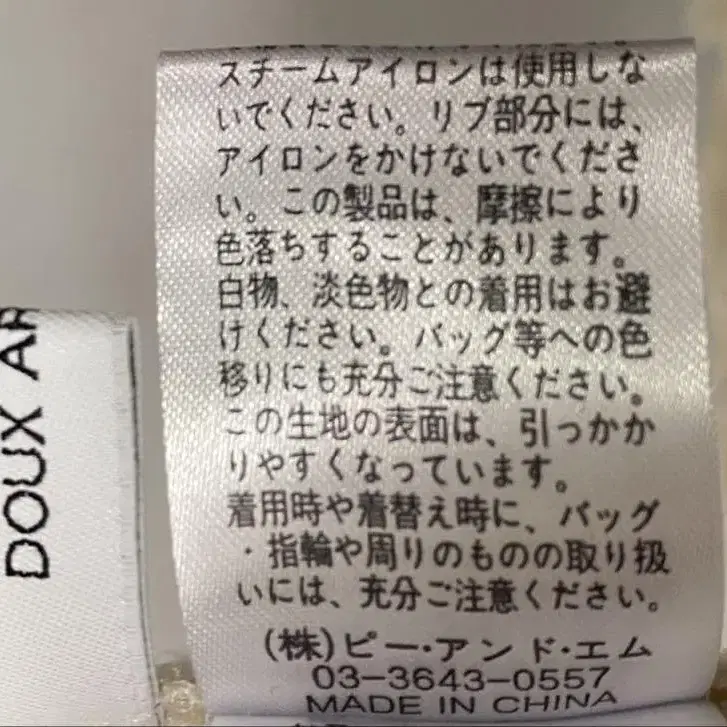 スチームアイロンは使用しな
いでください。リブ部分には、
アイロンをかけないでくださ
い。この製品は、摩擦により
色落ちすることがあります。
白物、淡色物との着用はお避
けください。バッグ等への色
移りにも充分ご注意ください。
この生地の表面は、引っかか
りやすくなっています。
着用時や着替え時に、バッグ
・指輪や周りのものの取り扱
いには、充分ご注意ください。
(株)ピー・アンド・エム
03-3643-0557
MADE IN CHINA
DOUX AR